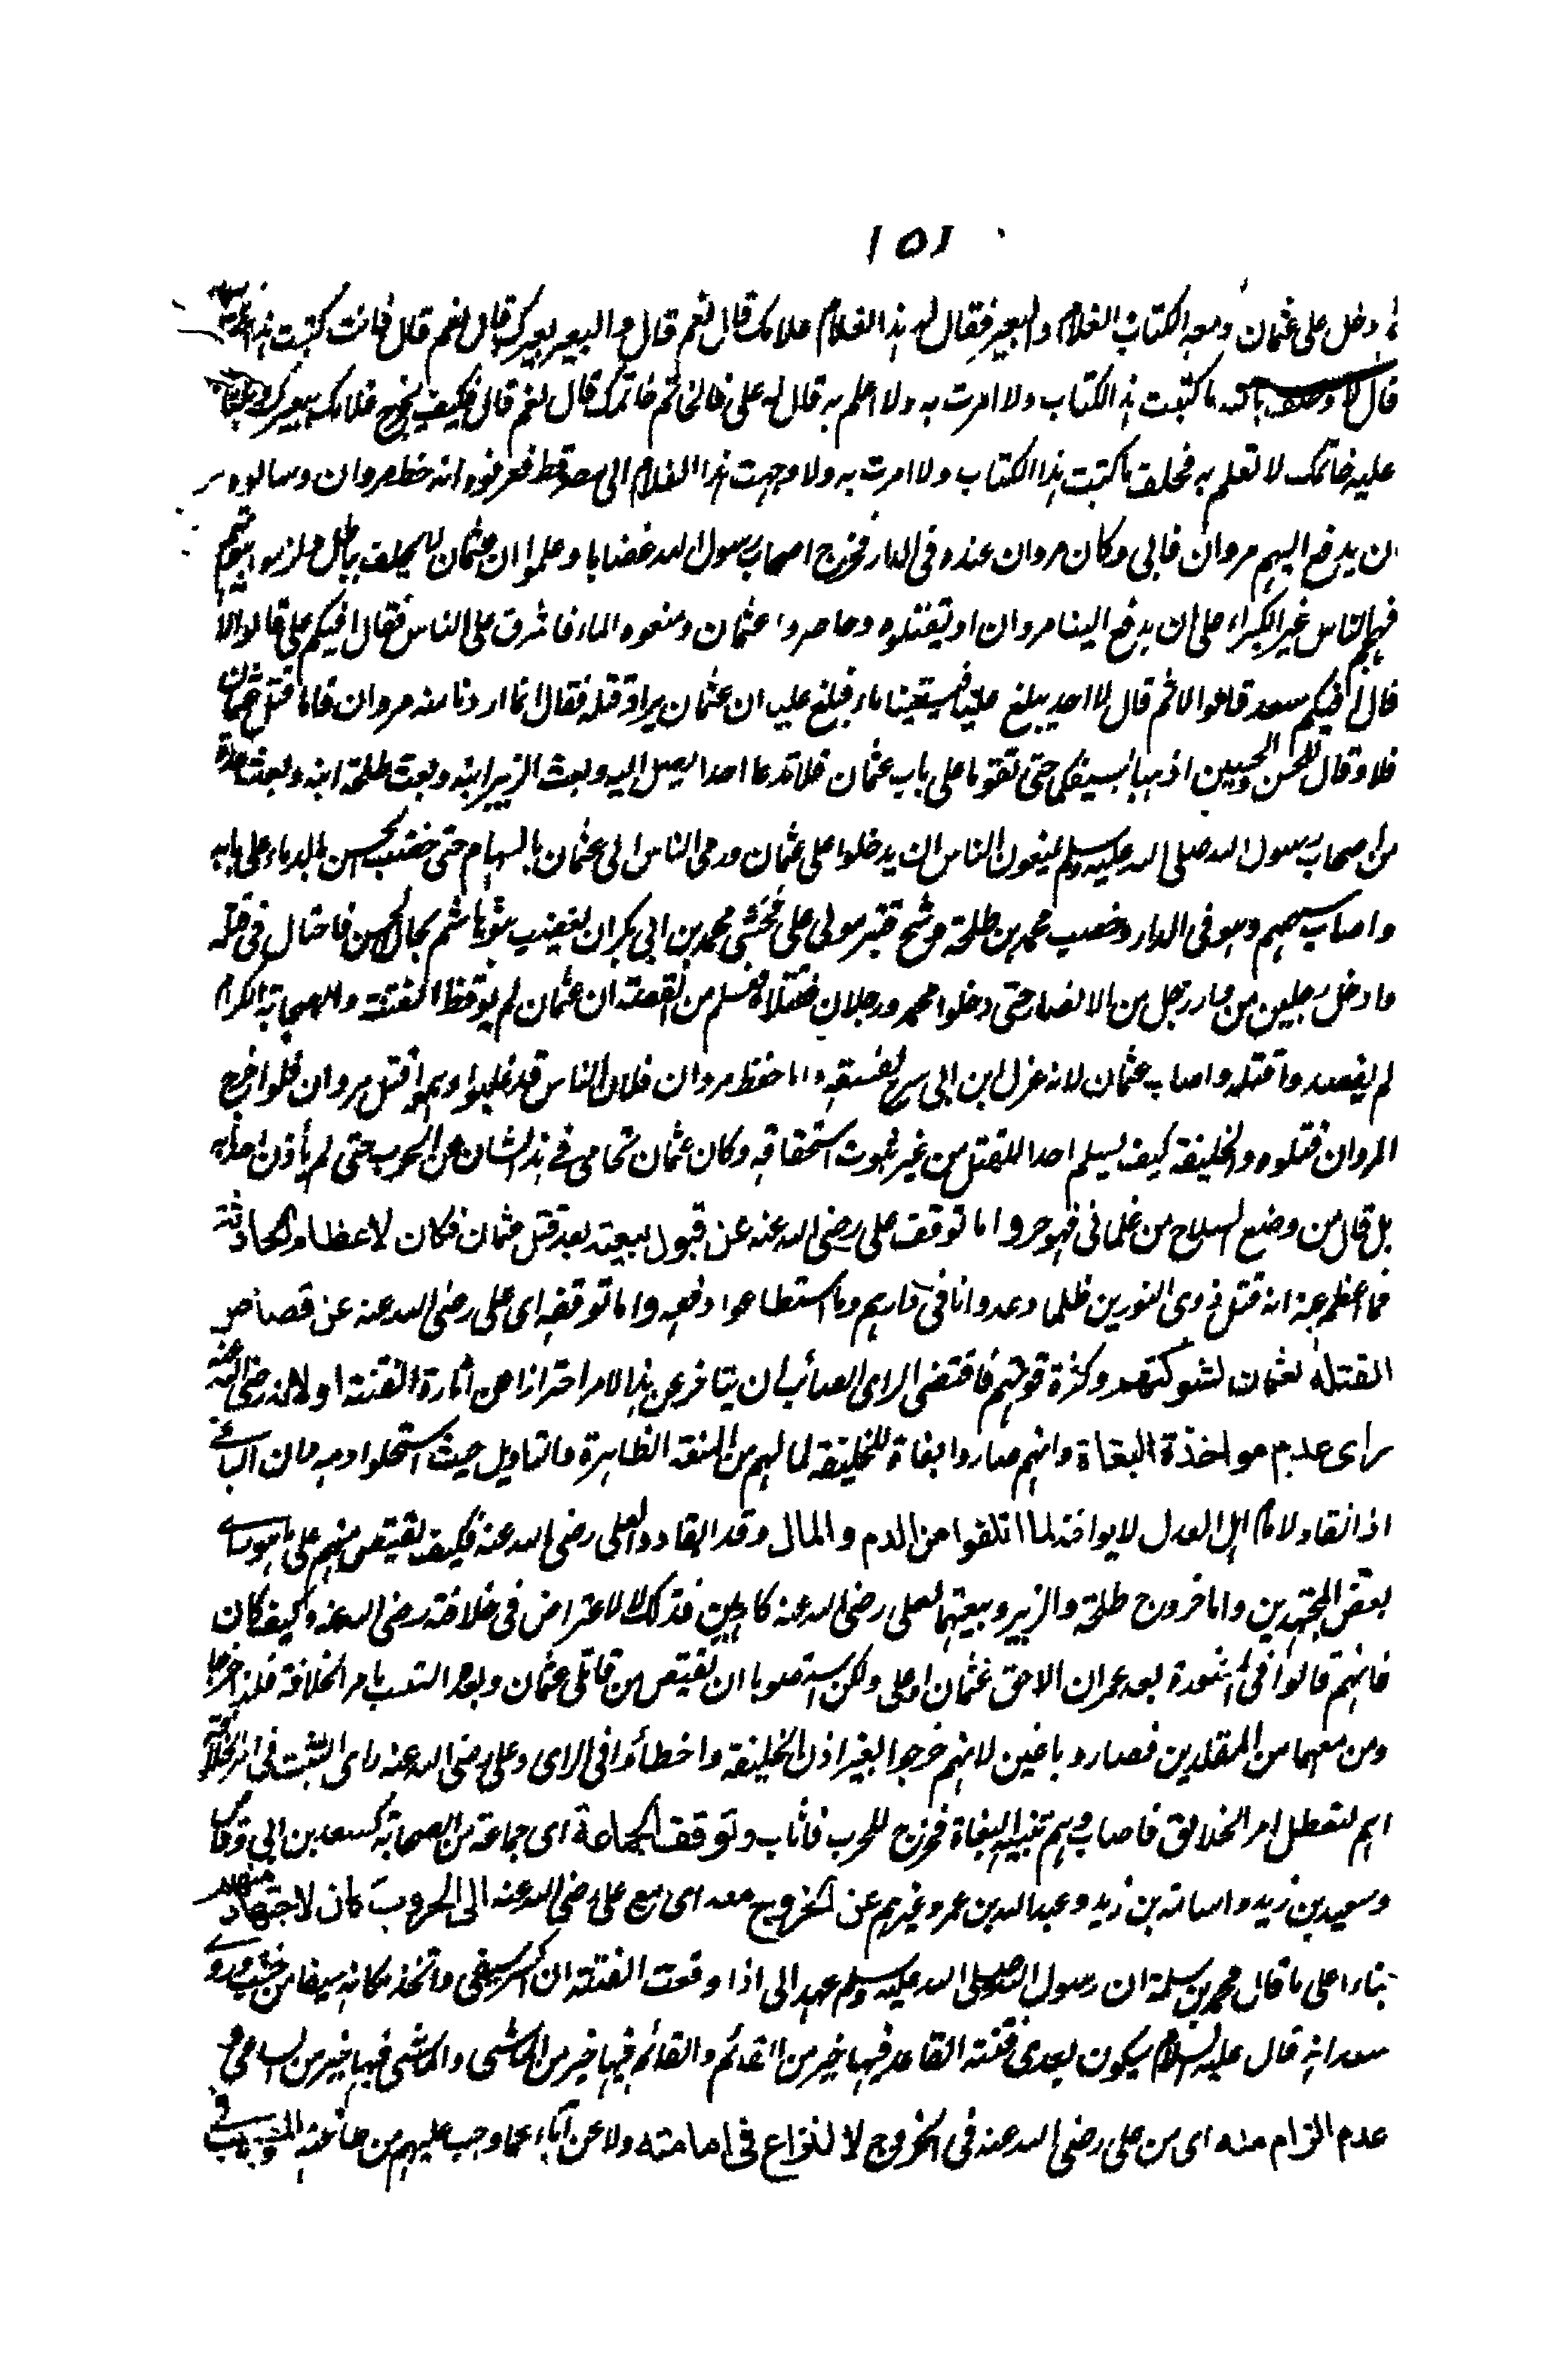 ١٥١
دخل على عثمان ومعه الكتاب الغلام والبعير فقال له هذا الغلام غلامك قال نعم قال والبعير بعيرك قال نعم قال فانت كتبت هذا
قال لا وحلف بالله ما كتبت هذا الكتاب ولا امرت به ولا اعلم به قال له على فالخاتم خاتمك قال نعم قال فكيف يخرج غلامك ببعيرك وبكتاب
عليه خاتمك لا تعلم به فحلف ما كتبت هذا الكتاب ولا امرت به ولا وجهت هذا الغلام الى مصر قط فعرفوه انه خط مروان وسالوه
ان يدفع اليهم مروان فابى وكان مروان عنده فى الدار فخرج اصحاب رسول الله غضابا وعلموا ان عثمان لا يحلف بباطل فلزموا بيوتهم
الناس غير الكبراء على ان يدفع الينا مروان او يقتلوه وحاصروا عثمان ومنعوه الماء فاشرف على الناس فقال افيكم على قالوا لا
قال افيكم سعد قالوا لا ثم قال لا احد يبلغ عليا فيسقينا ماء فبلغ عليا ان عثمان يراد قتله فقال انما اردنا منه مروان فاما قتل عثمان
فلا وقال للحسن والحسين اذهبا بسيفكما حتى تقوما على باب عثمان فلا تدعا احدا يصل اليه وبعث الزبير ابنه وبعث طلحة ابنه وبعث عدة
من اصحاب رسول الله صلى الله عليه وسلم يمنعون الناس ان يدخلوا على عثمان ورمى الناس الى عثمان بالسهام حتى خضب الحسن بالدماء على بابه
واصاب سهم وهو فى الدار وخضب محمد بن طلحة وشج قنبر مولى على فخشى محمد بن ابى بكر ان يغضب بنو هاشم بحال الحسن فاحتال فى قتله
وادخل رجلين من دار رجل من الانصار حتى دخلوا محمد ورجلان فقتلاه فعلم من القصة ان عثمان لم يوقظ الفتنة والصحابة الكرام
لم يقصدوا قتله واصاب عثمان لانه عزل ابن ابى سرح لفسقه واما حفظ مروان فلان الناس قد غلبوا وهموا قتل مروان فلو اخرج
المروان قتلوه والخليفة كيف يسلم احدا للقتل من غير ثبوت استحقاقه وكان عثمان تحامى فى هذا الشان عن الحرب حتى لم يأذن احدا به
بل قال من وضع السلاح من غلمانى فهو حر واما توقف على رضى الله عنه عن قبول بيعته بعد قتل عثمان فكان لاعظام الحادثة
فما اعظم عنه انه قتل ذوى النورين ظلما وعدوانا فى دارهم وما استطاعوا دفعه واما توقفه اى على رضى الله عنه عن قصاص
القتلة لعثمان لشوكتهم وكثرة قوتهم فاقتضى الراى الصائب ان يتاخر عن هذا الامر احترازا عن اثارة الفتنة او لانه رضى الله عنه
راى عدم مواخذة البغاة وانهم صاروا بغاة للخليفة لما لهم من المنعة الظاهرة والتاويل حيث استحلوا دمه وان الباغى
اذا انقاد لامام اهل العدل لا يواخذ لما اتلفوا من الدم والمال وقد انقادوا لعلى رضى الله عنه فكيف يقتص منهم على ما هو راى
بعض المجتهدين واما خروج طلحة والزبير وبيعتهما لعلى رضى الله عنه كارهين فذلك لا لاعتراض فى خلافته رضى الله عنه وكيف كان
فانهم قالوا فى الشورة بعد عمر ان الاحق عثمان او على ولكن استصوبا ان يقتص من قاتلى عثمان وبعد التعب بامر الخلافة فلذا خرجا
ومن معهما من المقلدين فصاروا باغين لانهم خرجوا بغير اذن الخليفة واخطأوا فى الراى وعلى رضى الله عنه راى التثبت فى امر الخلافة
اهم لتعطل امر الخلائق فاصاب وهم تنبيه البغاة فخرج للحرب فاثاب وتوقف الجماعة اى جماعة من الصحابة كسعد بن ابى وقاص
وسعيد بن زيد واسامة بن زيد وعبد الله بن عمر وغيرهم عن الخروج معه اى مع على رضى الله عنه الى الحروب كان لاجتهاد منهم
بناء على ما قال محمد بن مسلمة ان رسول الله صلى الله عليه وسلم عهد الى اذا وقعت الفتنة ان اكسر سيفى واتخذ مكانه سيفا من خشب وروى
سعد انه قال عليه السلام يكون بعدى فتنة القاعد فيها خير من القائم والقائم فيها خير من الماشى والماشى فيها خير من الساعى و
عدم الزام منه اى من على رضى الله عنه فى الخروج لا لنزاع فى امامته ولا عن آباء عما وجب عليهم من طاعته